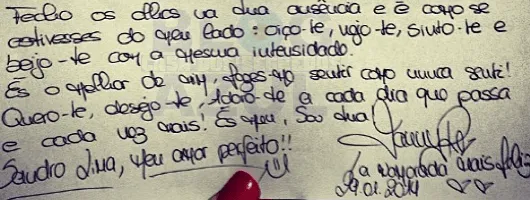 Fecho os olhos na tua ausência e é como se
estivesses do meu lado: oiço-te, vejo-te, sinto-te e
beijo-te com a mesma intensidade.
És o melhor de mim, fazes-me sentir como nunca senti!
Quero-te, desejo-te, adoro-te a cada dia que passa
e cada vez mais! És meu, Sou tua!
Sandro Lima, meu amor perfeito!!
Da namorada mais feliz
29.01.2014